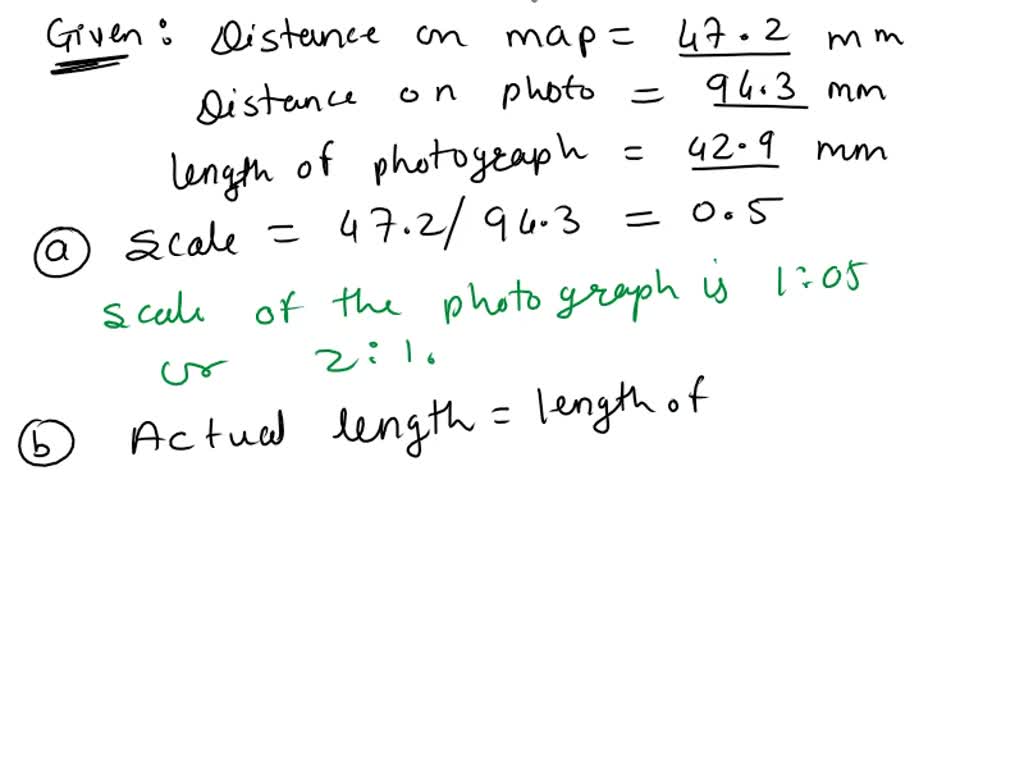 Given: Distance on map = 47.2 mm
Distance on photo = 94.3 mm
length of photograph = 42.9 mm
(a) scale = 47.2/94.3 = 0.5
scale of the photograph is 1:05
or 2:1.
(b) Actual length = length of